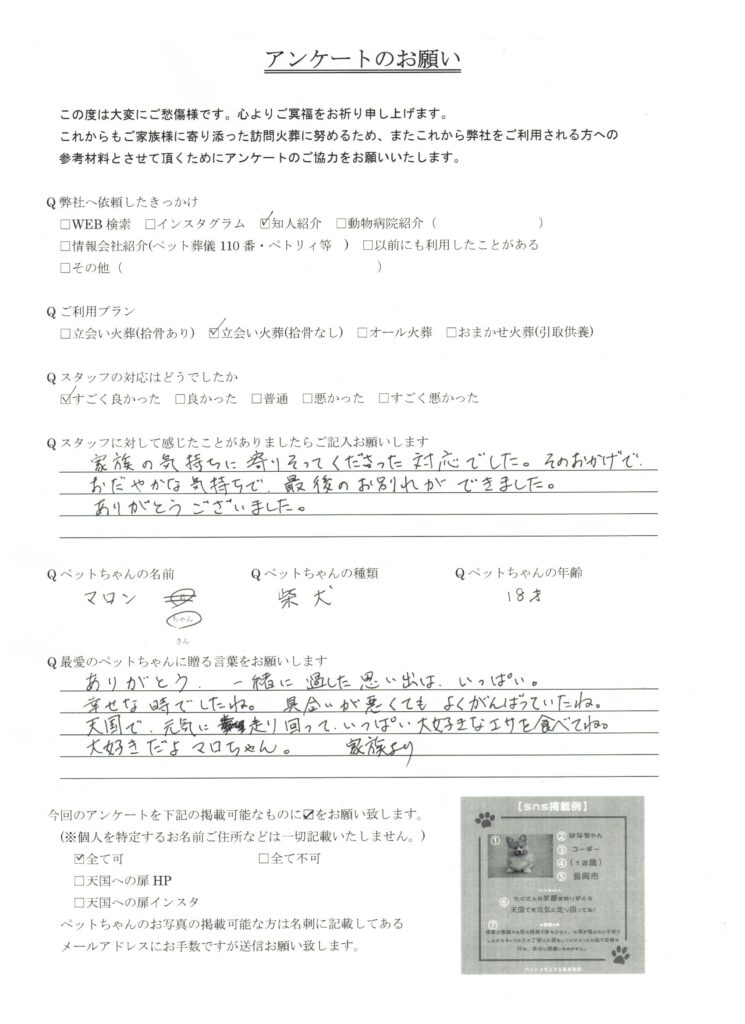 アンケートのお願い
この度は大変にご愁傷様です。心よりご冥福をお祈り申し上げます。
これからもご家族様に寄り添った訪問火葬に努めるため、またこれから弊社をご利用される方への
参考材料とさせて頂くためにアンケートのご協力をお願いいたします。
Q 弊社へ依頼したきっかけ
□WEB 検索 □インスタグラム ☑知人紹介 □動物病院紹介（ ）
□情報会社紹介(ペット葬儀 110 番・ペトリィ等 ) □以前にも利用したことがある
□その他（ ）
Q ご利用プラン
□立会い火葬(拾骨あり) ☑立会い火葬(拾骨なし) □オール火葬 □おまかせ火葬(引取供養)
Q スタッフの対応はどうでしたか
☑すごく良かった □良かった □普通 □悪かった □すごく悪かった
Q スタッフに対して感じたことがありましたらご記入お願いします
家族の気持ちに寄りそってくださった対応でした。そのおかげで、
おだやかな気持ちで、最後のお別れができました。
ありがとうございました。
Q ペットちゃんの名前 Q ペットちゃんの種類 Q ペットちゃんの年齢
マロン 柴犬 18才
ちゃん
さん
Q 最愛のペットちゃんに贈る言葉をお願いします
ありがとう、一緒に過した思い出は、いっぱい。
幸せな時でしたね。具合いが悪くてもよくがんばっていたね。
天国で、元気に走り回って、いっぱい大好きなエサを食べてね。
大好きだよマロちゃん。 家族より
今回のアンケートを下記の掲載可能なものに☑をお願い致します。
(※個人を特定するお名前ご住所などは一切記載いたしません。)
☑全て可 □全て不可
□天国への扉 HP
□天国への扉インスタ
ペットちゃんのお写真の掲載可能な方は名刺に記載してある
メールアドレスにお手数ですが送信お願い致します。
【sns掲載例】
① ② はなちゃん
③ コーギー
④ （12歳）
⑤ 長岡市
⑥ たくさんの笑顔をありがとう
天国でも元気に走り回ってね！
⑦